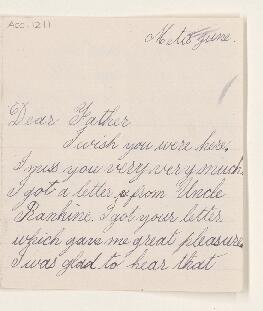 Acc. 1211
Metis June.
Dear Father
I wish you were here.
I miss you very very much.
I got a letter from Uncle
Rankine. I got your letter
which gave me great pleasure.
I was glad to hear that